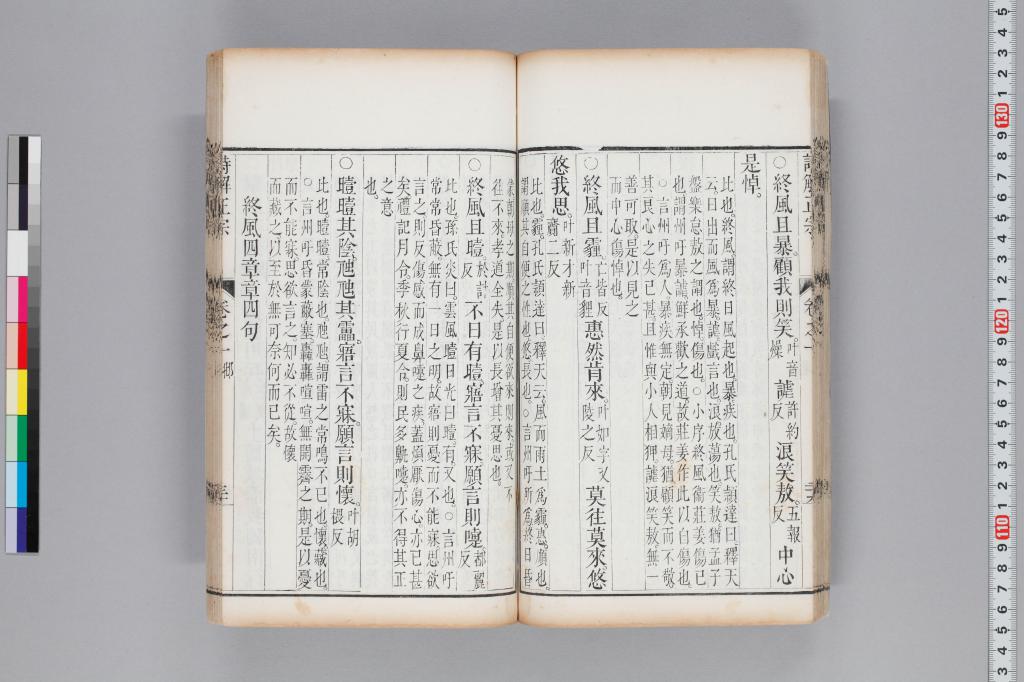 詩解正宗 卷之一
○終風且暴顧我則笑叶音燥謔許約反浪笑敖五報反中心
是悼
比也終風謂終日風起也暴疾也孔氏頴達曰釋天
云日出而風爲暴謔戲言也浪放蕩也笑敖猶孟子
盤樂怠敖之謂也悼傷也○小序終風衞莊姜傷已
也謂州吁暴謔鮮承歡之道故莊姜作此以自傷也
○言州吁爲人暴疾無定朝見嫡母猶顧笑而不敬
其良心之失已甚且惟與小人相狎謔浪笑敖無一
善可取是以見之
而中心傷悼也
○終風且霾亡皆反叶音貍惠然肯來叶如字又陵之反莫往莫來悠
悠我思叶新才新齎二反
比也霾孔氏頴達曰釋天云風而雨土爲霾惠順也
謂順其自便之性也悠長也○言州吁所爲終日昏
往不來孝道全失是以長增其憂思也
○終風且曀於計反不日有曀寤言不寐願言則嚏都麗反
比也孫氏炎曰雲風曀日光曰曀有又也○言州吁
常常昏蔽無有一日之明故寤則憂而不能寐思欲
言之則反傷感而成鼻嚏之疾蓋煩厭傷心亦已甚
矣禮記月令季秋行夏令則民多鼽嚏亦不得其正
之意
也
○曀曀其陰虺虺其靁寤言不寐願言則懷叶胡隈反
比也曀曀常陰也虺虺謂雷之常鳴不已也懷藏也
○言州吁昏蒙蔽塞轟轟喧喧無開霽之期是以憂
而不能寐思欲言之知必不從故懷
而藏之以至於無可奈何而已矣
終風四章章四句
詩解正宗 卷之一 邶